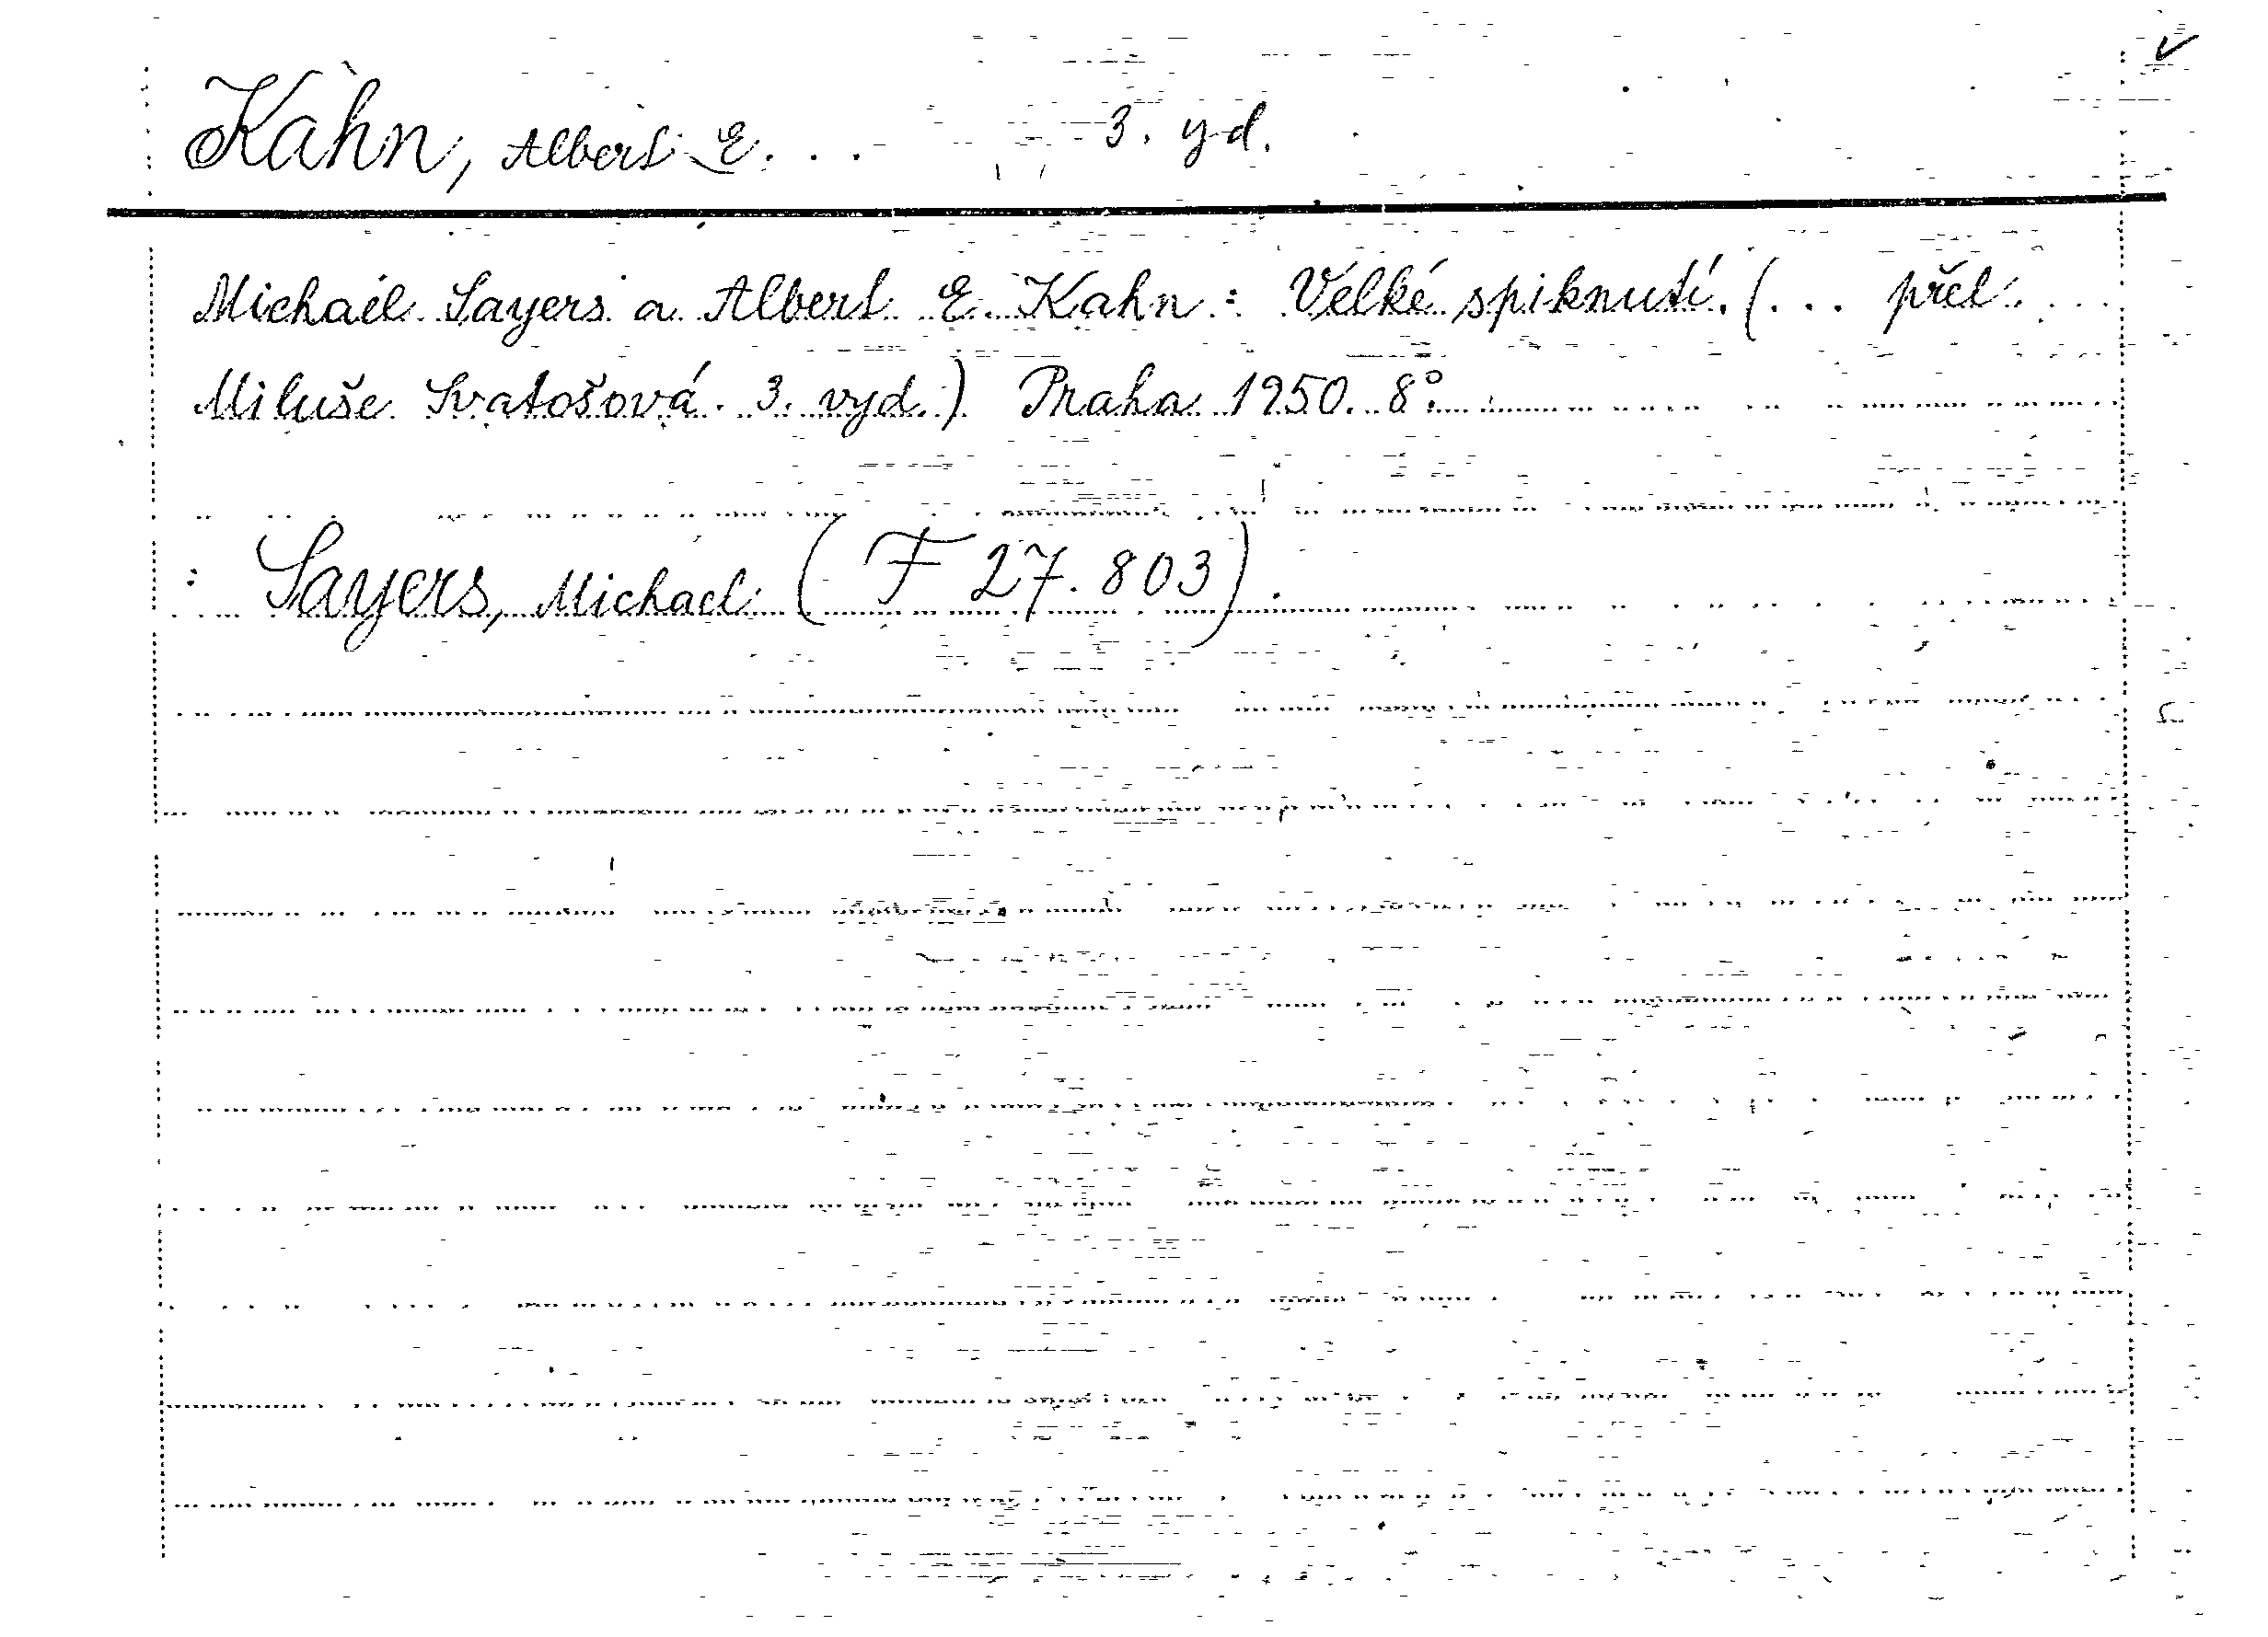 Kahn, Albert E. 3. yd.
Michael Sayers a Albert E. Kahn: Velké spiknutí. (... přel.
Miluše Svatošová. 3. vyd.) Praha 1950. 8°.
: Sayers, Michael (F 27.803).